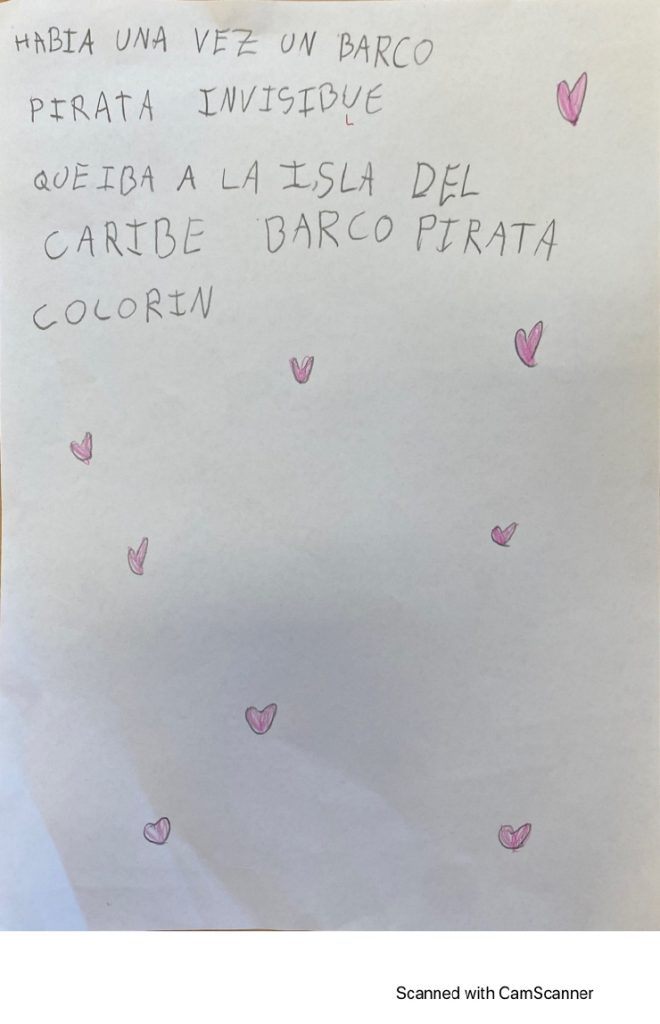 HABIA UNA VEZ UN BARCO
PIRATA INVISIBUE
L
QUEIBA A LA ISLA DEL
CARIBE BARCO PIRATA
COLORIN
Scanned with CamScanner